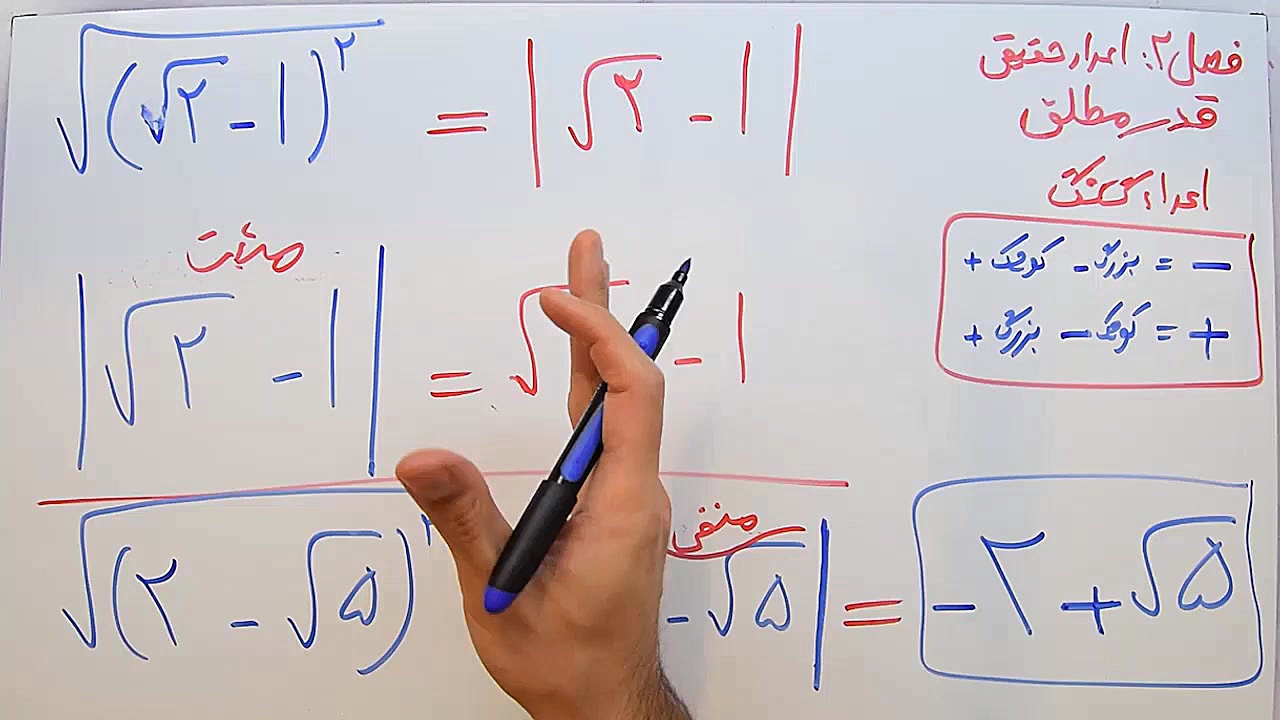 فصل ۲: اعداد حقیقی
قدر مطلق
اعداد گنگ
− = بزرگ - کوچک +
+ = کوچک − بزرگ +
√(√۲ - ۱)^۲ = |√۲ - ۱|
مثبت
|√۲ - ۱| = √ - ۱
منفی
√(۲ - √۵)^۲ - √۵| = -۲ + √۵